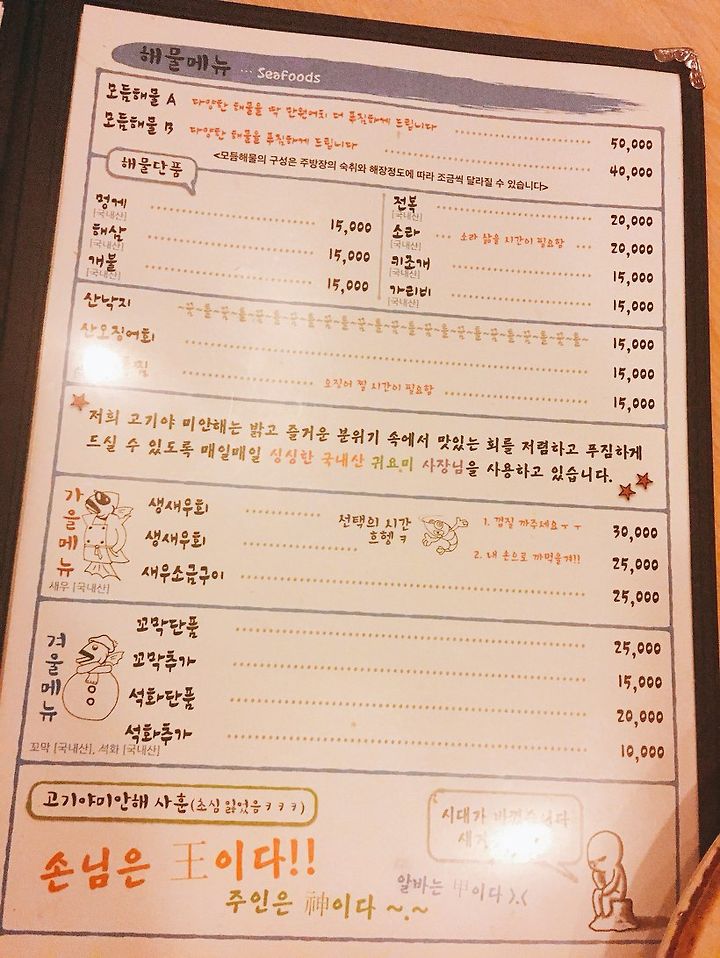 해물메뉴 ... Seafoods
모듬해물 A 다양한 해물을 딱 만원어치 더 푸짐하게 드립니다 50,000
모듬해물 B 다양한 해물을 푸짐하게 드립니다 40,000
<모듬해물의 구성은 주방장의 숙취와 해장정도에 따라 조금씩 달라질 수 있습니다>
해물단품
멍게 15,000
[국내산]
해삼 15,000
[국내산]
개불 15,000
[국내산]
전복 20,000
[국내산]
소라 소라 삶을 시간이 필요함 20,000
[국내산]
키조개 15,000
[국내산]
가리비 15,000
[국내산]
산낙지 ~꿈~틀~꿈~틀~꿈~틀~꿈~틀~꿈~틀~꿈~틀~꿈~틀~꿈~틀~ 15,000
산오징어회 15,000
오징어 찔 시간이 필요함 15,000
저희 고기야 미안해는 밝고 즐거운 분위기 속에서 맛있는 회를 저렴하고 푸짐하게
드실 수 있도록 매일매일 싱싱한 국내산 귀요미 사장님을 사용하고 있습니다.
가을메뉴
새우 [국내산]
생새우회 1. 껍질 까주세요ㅜㅜ 30,000
선택의 시간
흐헹ㅋ
생새우회 2. 내 손으로 까먹을겨!! 25,000
새우소금구이 25,000
겨울메뉴
꼬막단품 25,000
꼬막추가 15,000
석화단품 20,000
석화추가 10,000
꼬막 [국내산], 석화 [국내산]
고기야미안해 사훈(초심 잃었음ㅋㅋㅋ)
손님은 王이다!!
주인은 神이다 ~.~
알바는 甲이다 >.<
시대가 바뀌었습니다